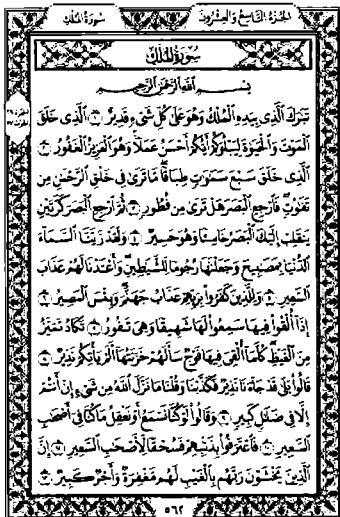 الجزء التاسع والعشرون سورة الملك
سورة الملك
بسم الله الرحمن الرحيم
تبرك الذي بيده الملك وهو على كل شيء قدير ۱ الذي خلق
الموت والحيوة ليبلوكم أيكم أحسن عملا وهو العزيز الغفور ۲
الذي خلق سبع سموت طباقا ما ترى في خلق الرحمن من
تفوت فارجع البصر هل ترى من فطور ۳ ثم ارجع البصر كرتين
ينقلب إليك البصر خاسئا وهو حسير ٤ ولقد زينا السماء
الدنيا بمصبيح وجعلنها رجوما للشيطين وأعتدنا لهم عذاب
السعير ٥ وللذين كفروا بربهم عذاب جهنم وبئس المصير ٦
إذا ألقوا فيها سمعوا لها شهيقا وهي تفور ۷ تكاد تميز
من الغيظ كلما ألقي فيها فوج سألهم خزنتها ألم يأتكم نذير ۸
قالوا بلى قد جاءنا نذير فكذبنا وقلنا ما نزل الله من شيء إن أنتم
إلا في ضلل كبير ۹ وقالوا لو كنا نسمع أو نعقل ما كنا في أصحب
السعير ۱۰ فاعترفوا بذنبهم فسحقا لأصحب السعير ۱۱ إن
الذين يخشون ربهم بالغيب لهم مغفرة وأجر كبير ۱۲
٥٦٢